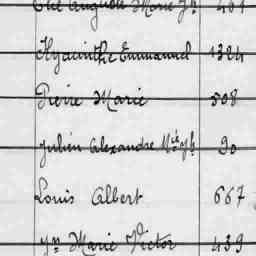 Marie Jh 461
Hyacinthe Emmanuel 1324
Pierre Marie 508
Julien Alexandre Mie Jh 90
Louis Albert 667
Jn Marie Victor 439